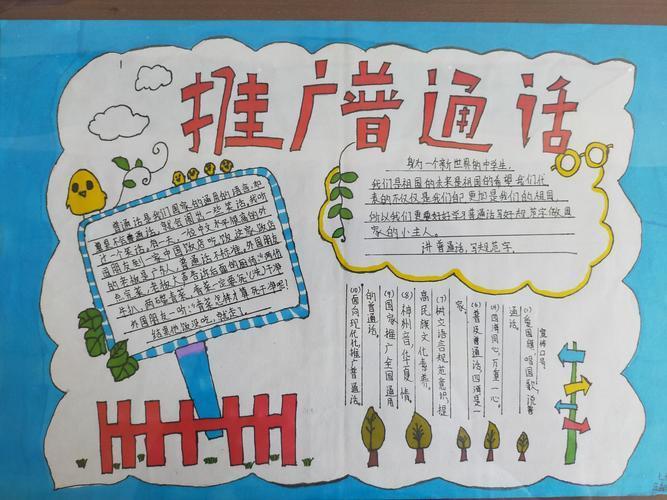 推广普通话
普通话是我们国家的通用的语言,如
果是不会普通话,就会闹出一些笑话,我听
过一个笑话:有一天,一位中文水平很高的外
国朋友到一家中国饭店吃饭,这家饭店
的老板是广东人,普通话不标准。外国朋友
点完菜,老板大声告诉后面的厨师:"两位
牛扒,两碟青菜,青菜一定要死(洗)干净!"
外国朋友一听:"青菜怎样才算死干净呢!
结果他饭没吃,就走了。
身为一个新世界的中学生,
我们是祖国的未来是祖国的希望我们代
表的不仅仅是我们自己更加是我们的祖国,
所以我们更要好好学习普通话写好规范字做国
家的小主人。
讲普通话,写规范字。
宣传口号:
(1)爱国旗,唱国歌,说普
通话。
(4)四海同心,万童一心。
(6)普及普通话,四海是一
家。
(7)树立语言规范意识,提
高民族文化素养。
(8)神州音,华夏情。
(9)国家推广全国通用
的普通话。
(10)面向现代化,推广普通话。